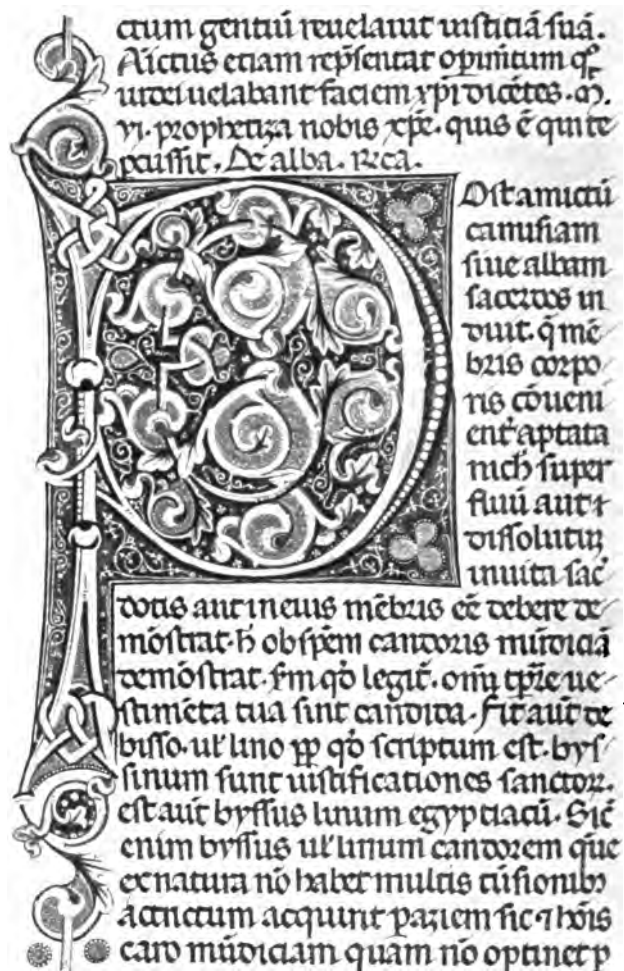 ctum gentiū revelavit iusticiā suā.
Amictus etiam rep̄sentat opimētum qͦ
iudei uelabant faciem xp̄i dicētes. M.
vi. prophetiza nobis xp̄e. quis ē qui te
pcussit. De alba. R̃ica.
Post amictū
camisiam
siue albam
sacerdos in
duit. q̄ mē
bris corpo
ris cōveni
ent̃ aptata
nich̃ super
fluū aut ⁊
dissolutuꝫ
in uita sac̃
dotis aut in eius mēbris eē debere de
mōstrat. h̄ ob sp̄em candoris mūdiciā
demōstrat. s̄m qđ legit̃. omī tp̄re ue
stimēta tua sint candida. Fit aut̃ de
bisso. ul̃ lino ꝓp̃ qđ scriptum est. bys
sinum sunt iustificationes sanctoꝝ.
est aut̃ byssus linum egyptiacū. Sic̃
enim byssus ul̃ linum candorem quē
ex natura nō habet multis tūsionibꝰ
actrictum acquirit ꝑ aꝫiem sic ⁊ hōis
caro mūdiciam quam nō optinet p